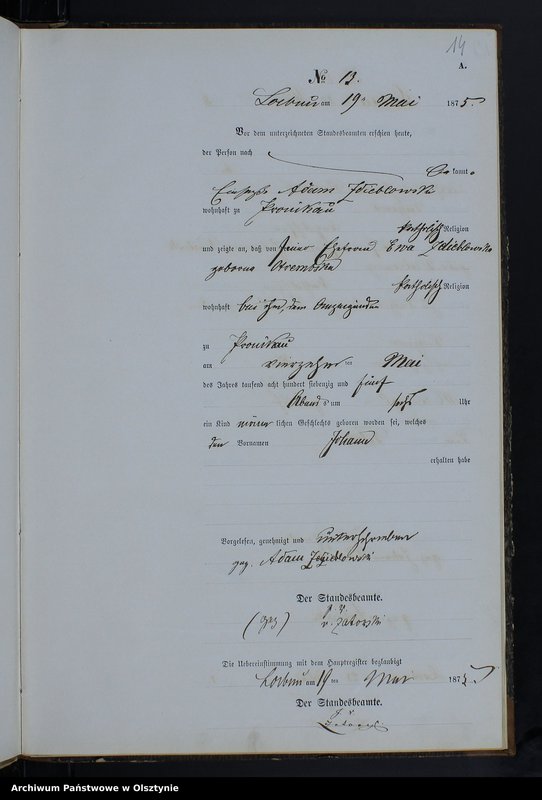 14
A.
No 13.
am 19 Mai 1875.
Vor dem unterzeichneten Standesbeamten erschien heute,
der Person nach
kannt,
Adam Zdieblowski
wohnhaft zu Pronikau
katholischer Religion
und zeigte an, daß von seiner Ehefrau Ewa Zdieblowska
geborene
katholischer Religion
wohnhaft bei ihm, dem Anzeigenden
zu Pronikau
am vierzehn ten Mai
des Jahres tausend acht hundert siebenzig und fünf
Abends um sechs Uhr
ein Kind männlichen Geschlechts geboren worden sei, welches
den Vornamen Johann
erhalten habe
Vorgelesen, genehmigt und unterschrieben
gez. Adam Zdieblowski
Der Standesbeamte.
(gez)
Die Uebereinstimmung mit dem Hauptregister beglaubigt
am 19 ten Mai 1875
Der Standesbeamte.
Archiwum Państwowe w Olsztynie